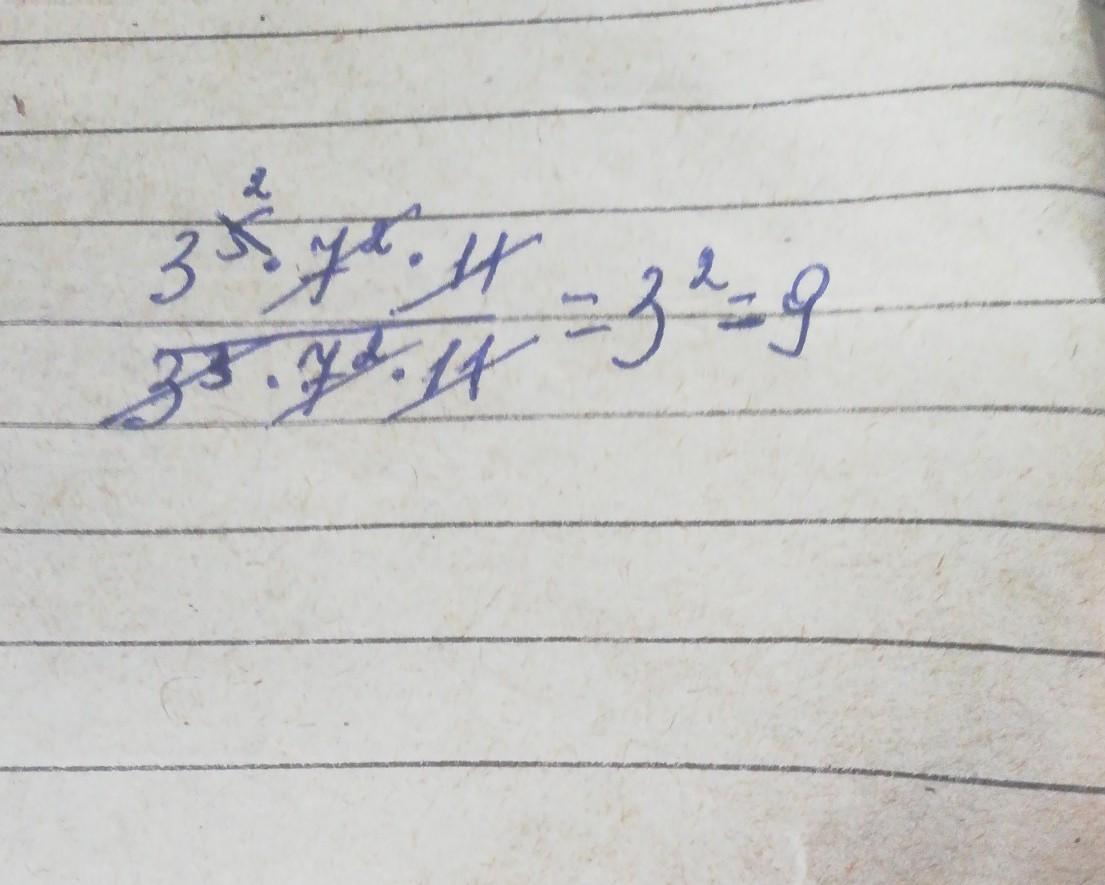 2
3⁵ · 7² · 11
3³ · 7² · 11 = 3² = 9